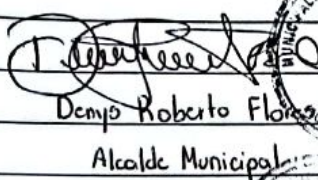 Denys Roberto Flores
Alcalde Municipal